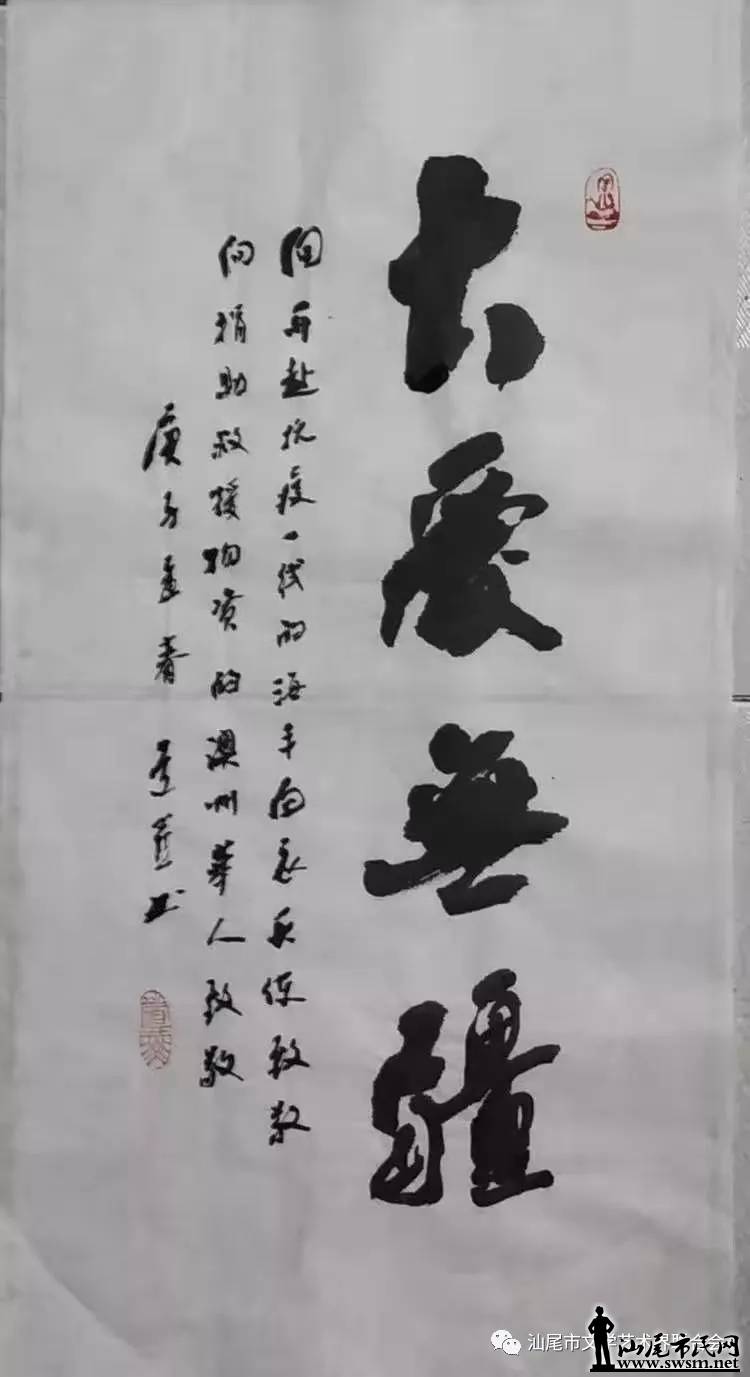 大爱無疆
向再赴抗疫一线的海丰白衣兵侠致敬
向捐助救援物资的澳州華人致敬
庚子孟春 書
汕尾市文学艺术界联合会
汕尾市民网
www.swsm.net